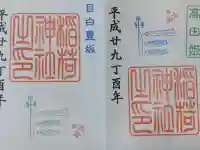 目白豊坂
稲荷
神社
之印
平成廿九丁酉年
高田姫
稲荷
神社
之印
平成廿九丁酉年